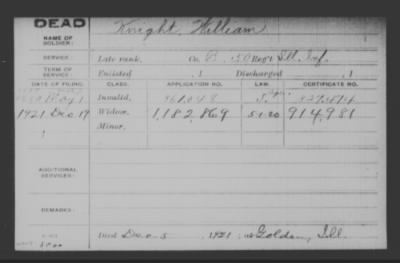 DEAD
NAME OF SOLDIER:
Knight, William
SERVICE:
Late rank, Co. B, 50 Reg't Ill. Inf.
TERM OF SERVICE:
Enlisted , 1 Discharged , 1
DATE OF FILING. CLASS. APPLICATION NO. LAW. CERTIFICATE NO.
Invalid,
1921 Dec 19 Widow, 1,182,869 5-1-20 914,981
Minor,
ADDITIONAL SERVICES:
REMARKS:
Died Dec 5, 1921, at Golden, Ill.